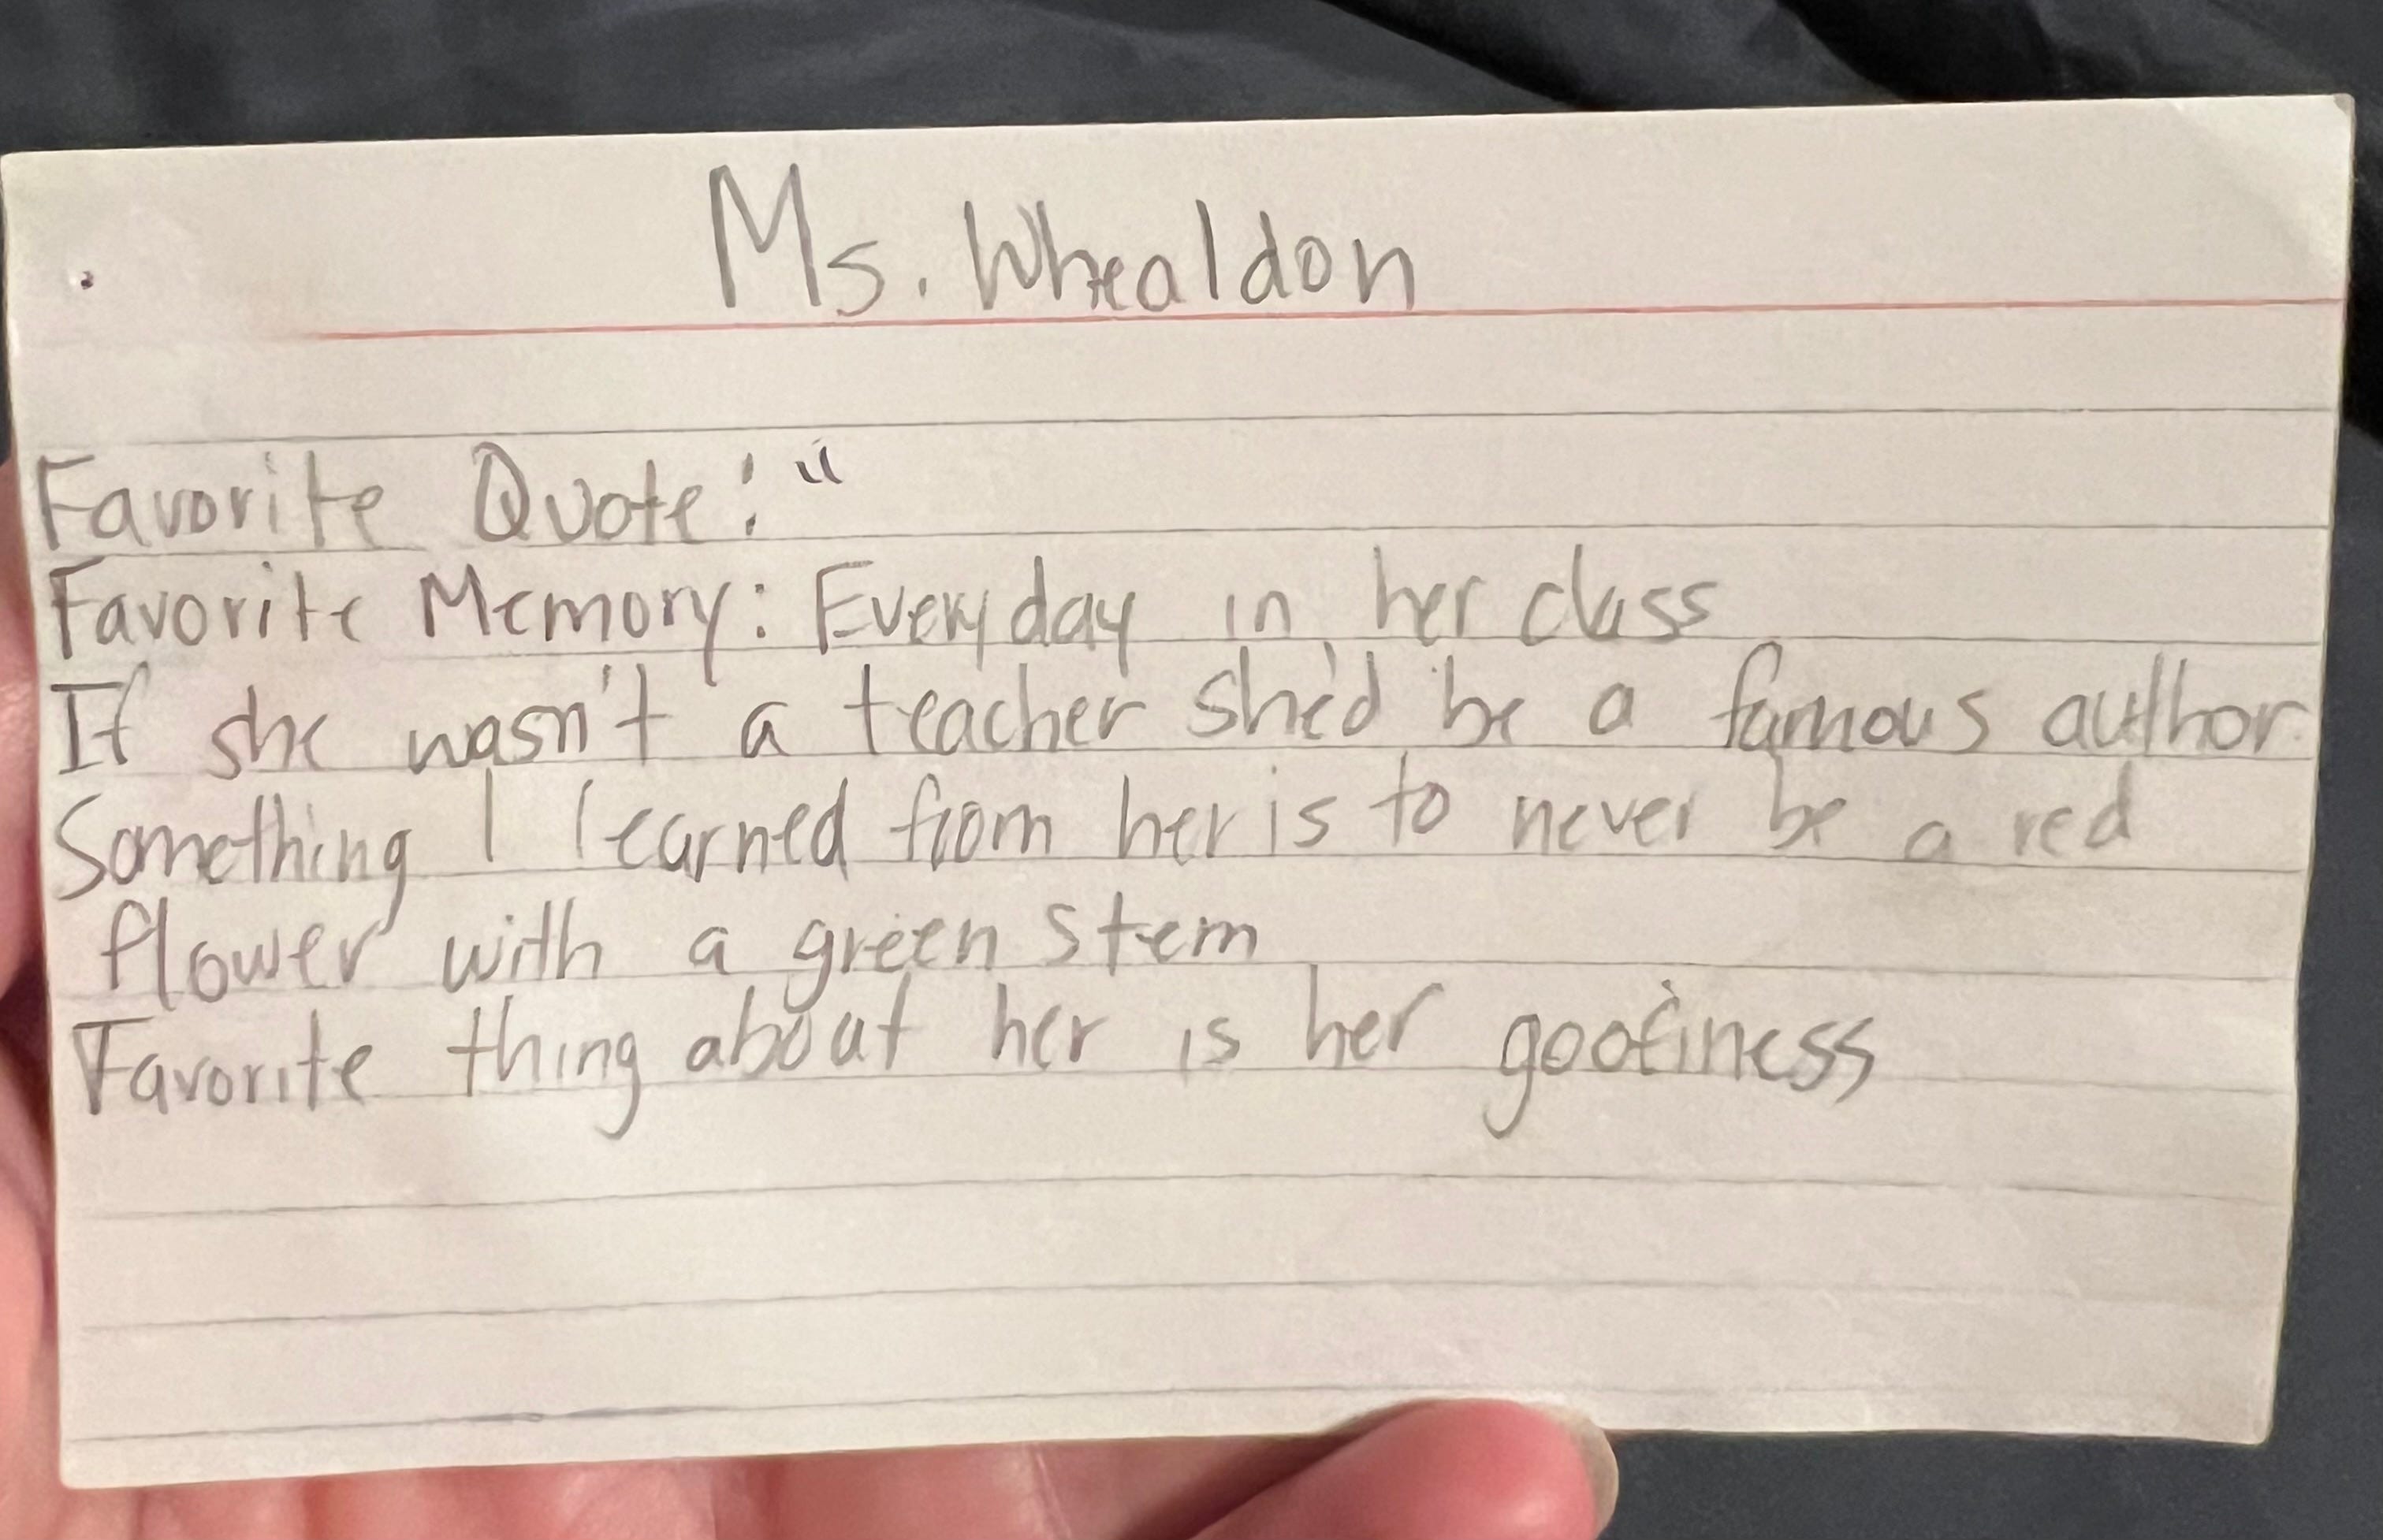 Ms. Whealdon
Favorite Quote: "
Favorite Memory: Everyday in her class
If she wasn't a teacher she'd be a famous author.
Something I learned from her is to never be a red
flower with a green stem
Favorite thing about her is her goofiness